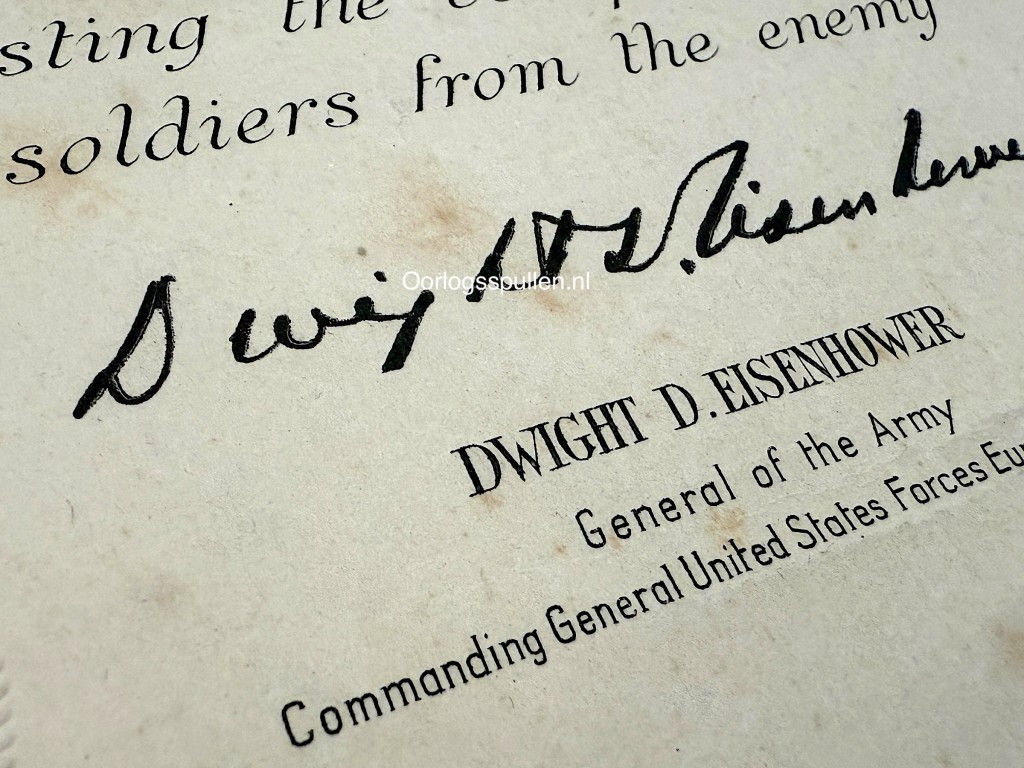 sting the
soldiers from the enemy
Dwight D. Eisenhowe
Oorlogsspullen.nl
DWIGHT D. EISENHOWER
General of the Army
Commanding General United States Forces Eu